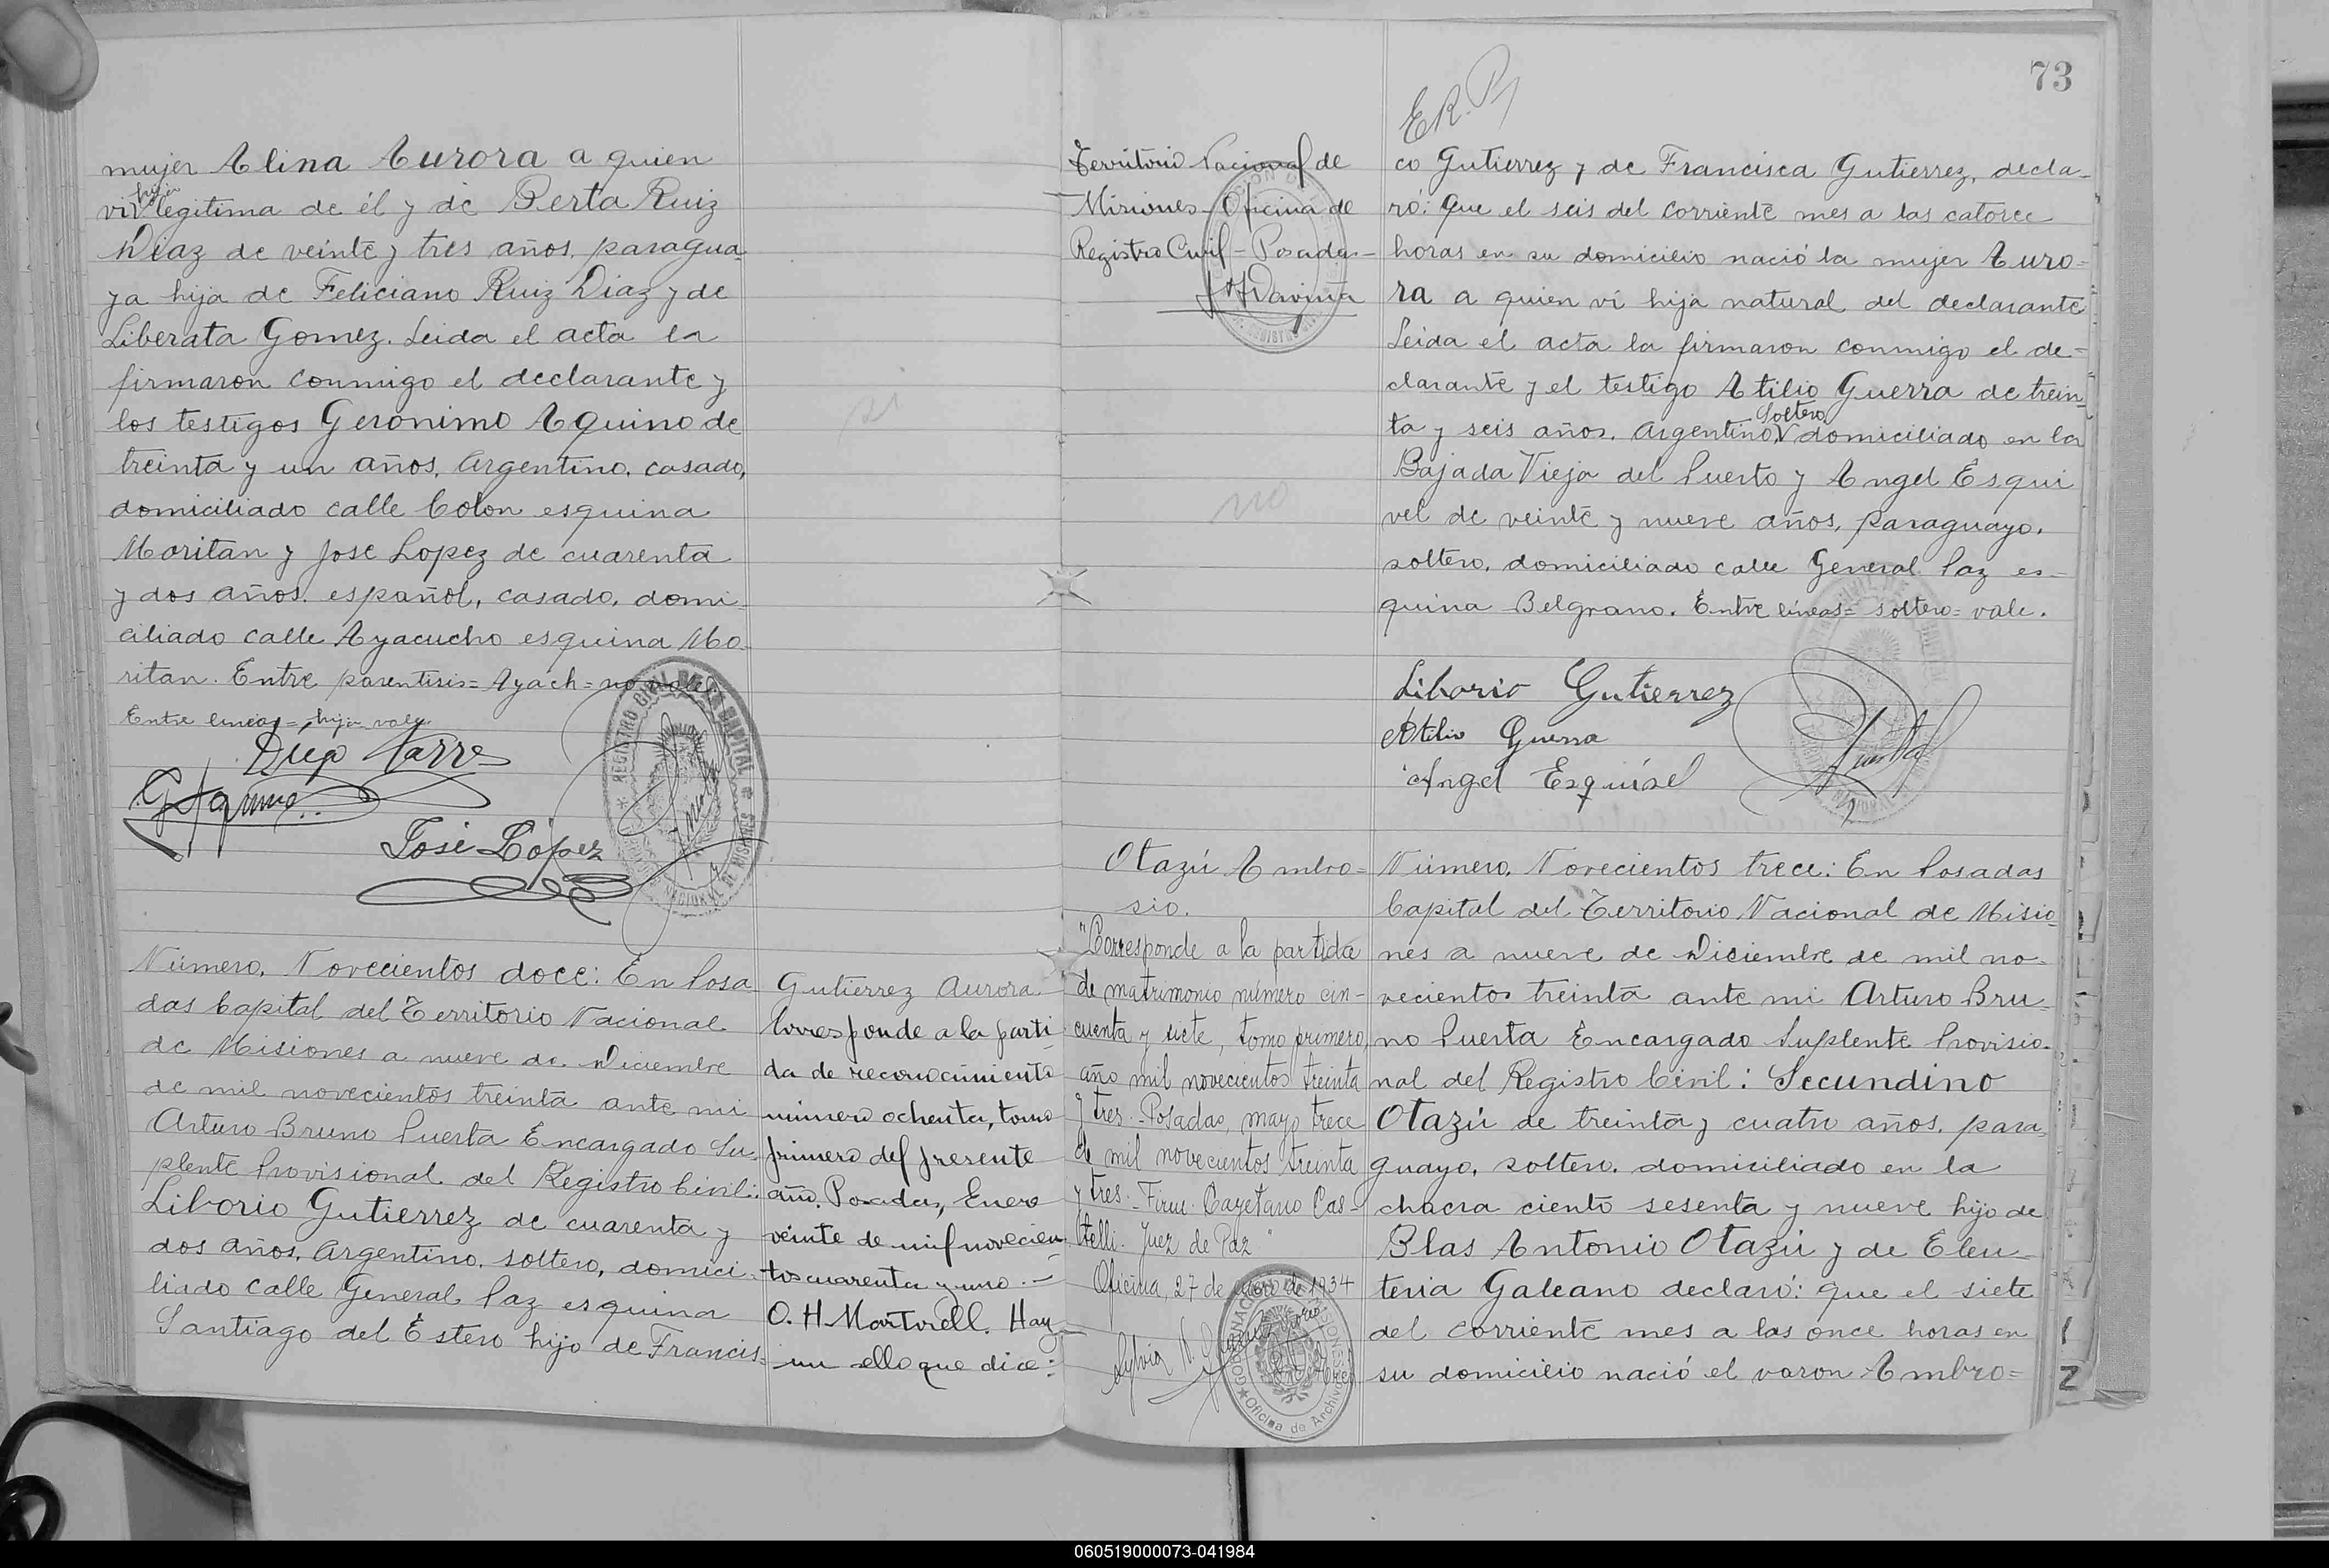 mujer Alina Aurora a quien
hija
ví V legitima de él y de Berta Ruiz
Diaz de veinte y tres años, paragua-
ya hija de Feliciano Ruiz Diaz y de
Liberata Gomez. Leida el acta la
firmaron conmigo el declarante y
los testigos Gerónimo Aquino de
treinta y un años, Argentino, casado,
domiciliado calle Colon esquina
Moritan y Jose Lopez de cuarenta
y dos años, español, casado, domi-
ciliado calle Ayacucho esquina Mo-
ritan. Entre parentisis= Ayach= no vale
Entre lineas= hija vale.
José López
Número, Novecientos doce: En Posa
das Capital del Territorio Nacional
de Misiones a nueve de Diciembre
de mil novecientos treinta ante mi
Arturo Bruno Puerta Encargado Su-
plente Provisional del Registro Civil:
Liborio Gutierrez de cuarenta y
dos años, Argentino, soltero, domici-
liado calle General Paz esquina
Santiago del Estero hijo de Francis-
Gutierrez Aurora
Corresponde a la parti
da de reconocimiento
número ochenta, tomo
primero del presente
año. Posadas, Enero
veinte de mil novecien
tos cuarenta y uno.-
O. H. Martorell. Hay
un sello que dice:
73
E.R.P
Territorio Nacional de
Misiones - Oficina de
Registro Civil - Posadas-
no
co Gutierrez y de Francisca Gutierrez, decla-
ró: que el seis del corriente mes a las catorce
horas en su domicilio nació la mujer Auro-
ra a quien ví hija natural del declarante
Leida el acta la firmaron conmigo el de-
clarante y el testigo Atilio Guerra de trein
soltero
ta y seis años, Argentino, V domiciliado en la
Bajada Vieja del Puerto y Angel Esqui
vel de veinte y nueve años, paraguayo,
soltero, domiciliado calle General Paz es-
quina Belgrano. Entre lineas= soltero= vale.
Liborio Gutierrez
Atilio Guerra
Angel Esquivel
Otazú Ambro-
sio.
"Corresponde a la partida
de matrimonio número cin-
cuenta y siete, tomo primero,
año mil novecientos treinta
y tres. Posadas, mayo trece
de mil novecientos treinta
y tres. Firm. Cayetano Cas-
telli. Juez de Paz"
Oficina, 27 de enero de 1934
Oficina de Archivo
Número, Novecientos trece: En Posadas
Capital del Territorio Nacional de Misio
nes a nueve de Diciembre de mil no-
vecientos treinta ante mi Arturo Bru-
no Puerta Encargado Suplente Provisio-
nal del Registro Civil: Secundino
Otazú de treinta y cuatro años, para-
guayo, soltero, domiciliado en la
chacra ciento sesenta y nueve hijo de
Blas Antonio Otazú y de Eleu-
teria Galeano declaró: que el siete
del corriente mes a las once horas en
su domicilio nació el varon Ambro=
Z
060519000073-041984